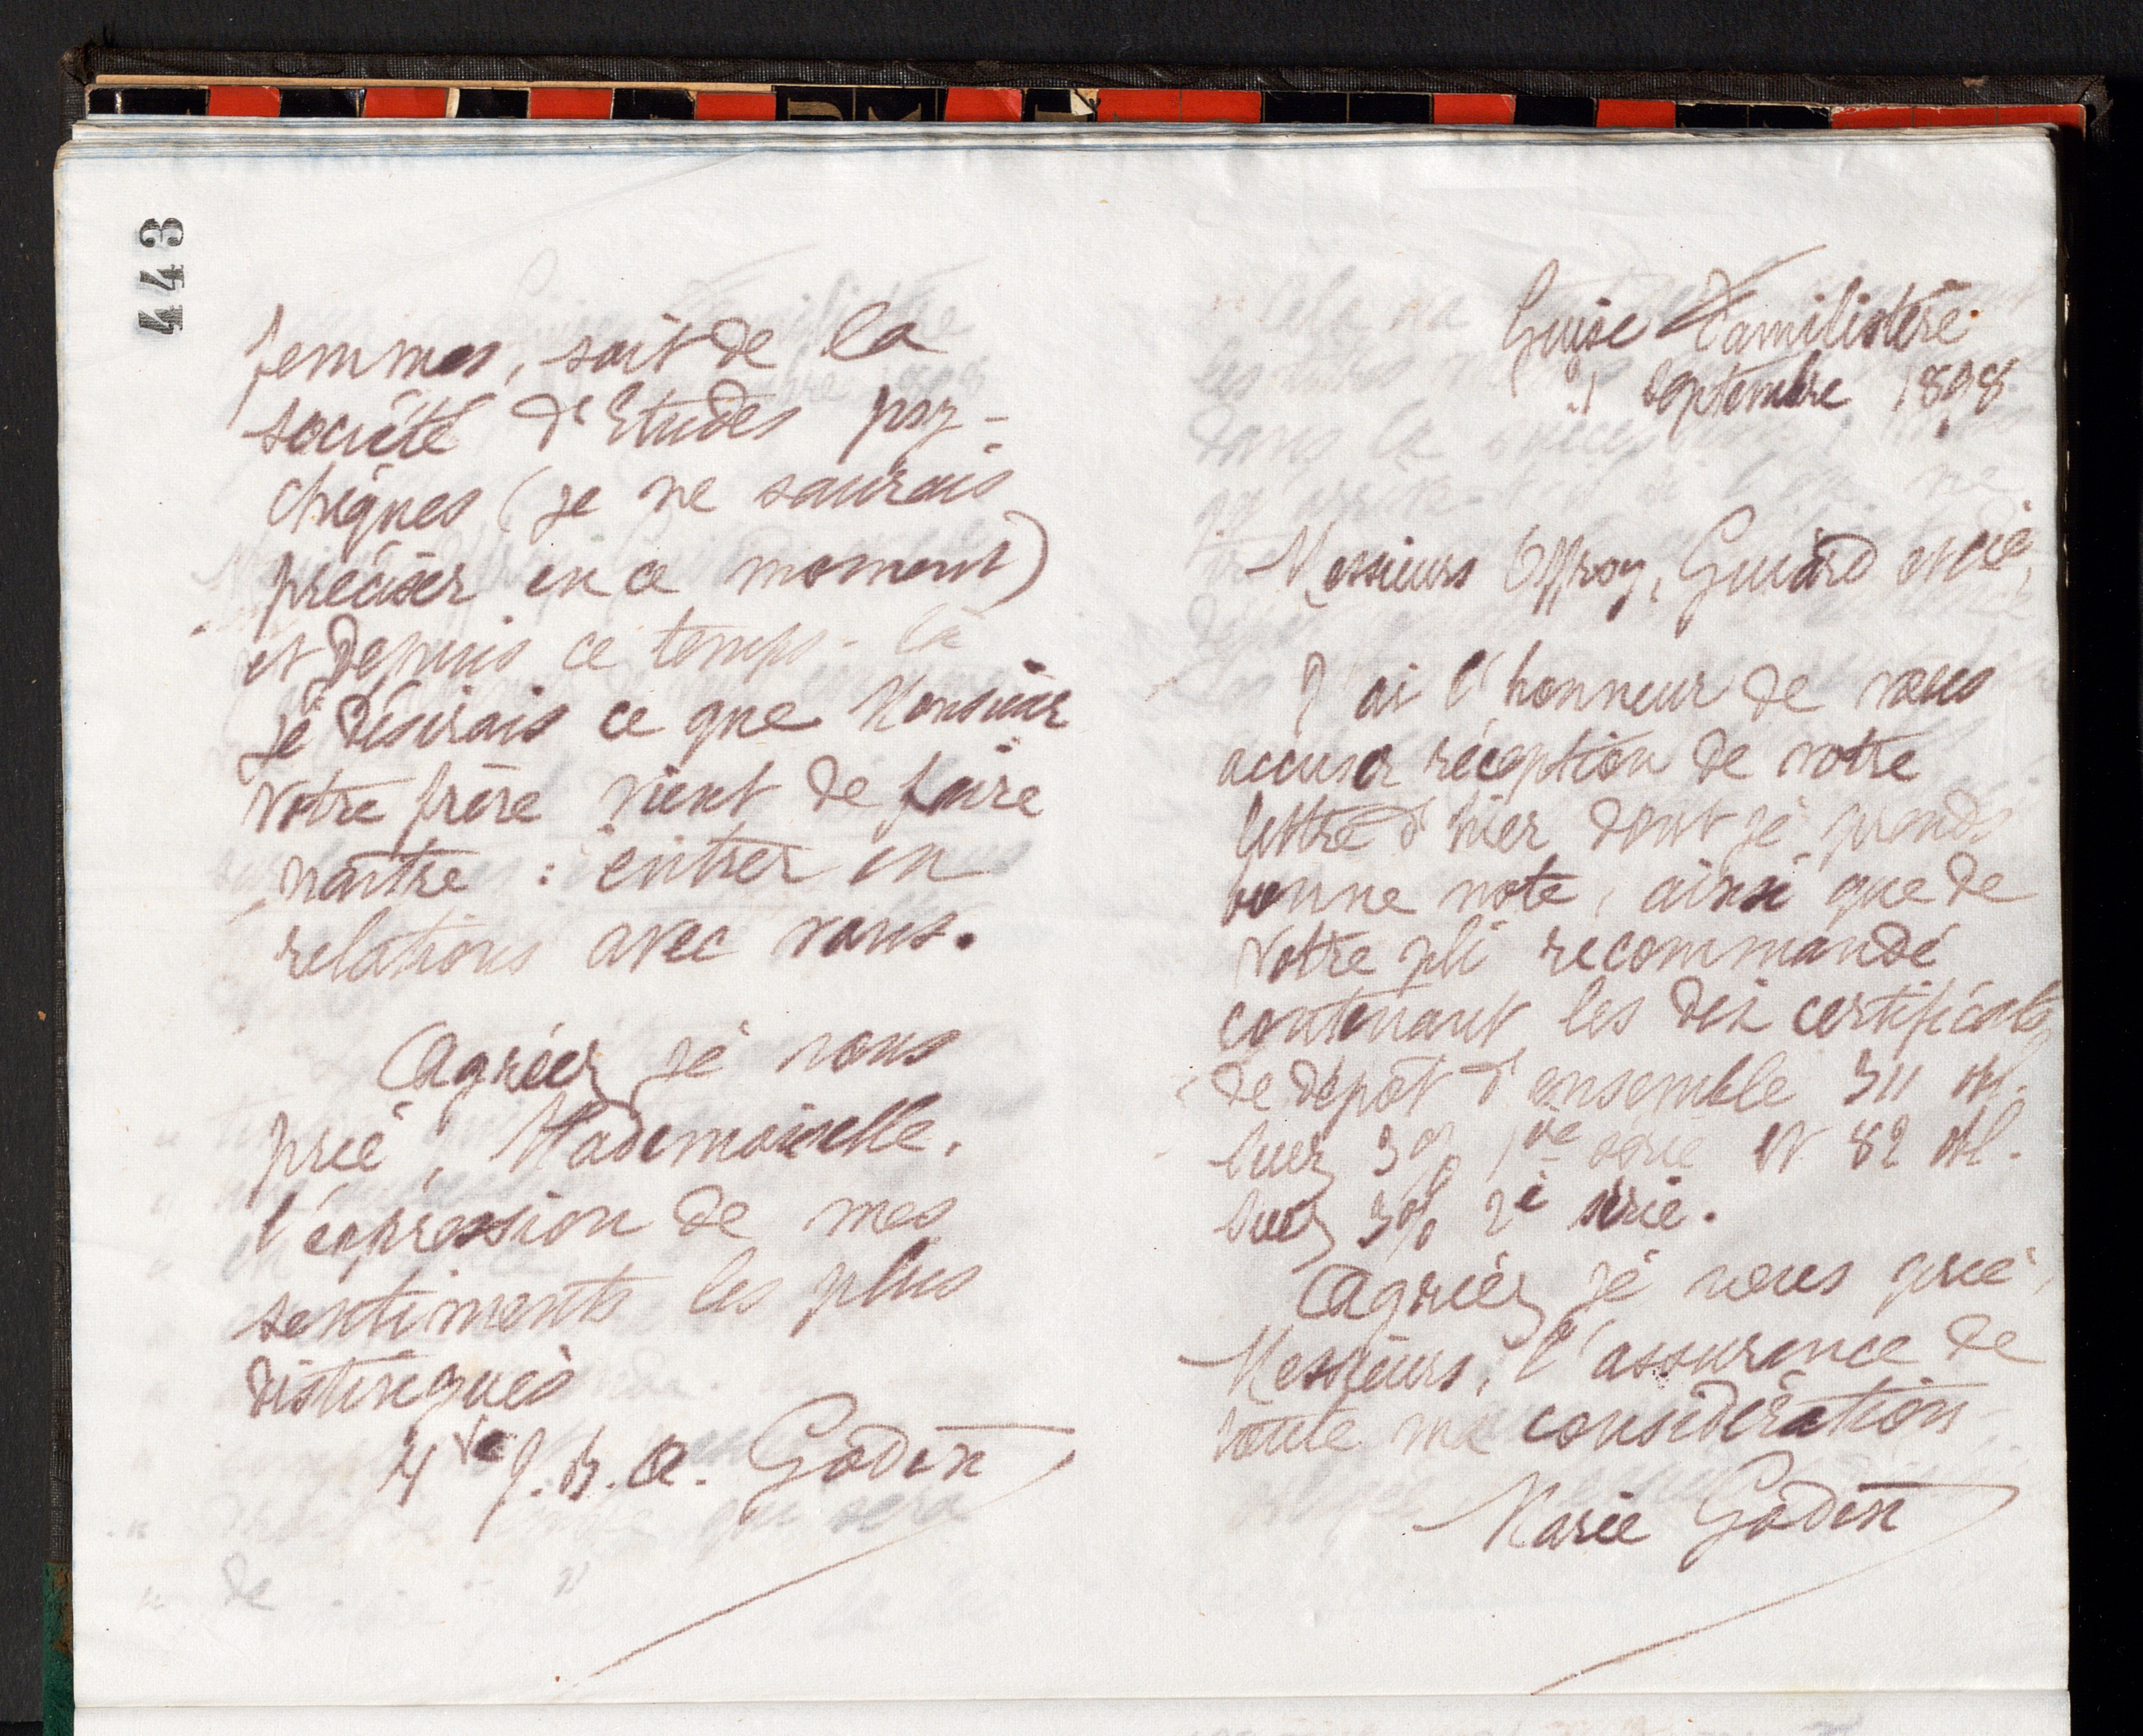 443
femmes, soit de la
société d'Etudes psy-
chiques (je ne saurais
préciser en ce moment)
et depuis ce temps-là
je désirais ce que Monsieur
votre frère vient de faire
naître : entrer en
relations avec vous.
Agréez je vous
prie, Mademoiselle,
l'expression de mes
sentiments les plus
distingués
Vve J. B. A. Godin
Guise Familistère
1 septembre 1898
Messieurs Offroy, Guiard et Cie,
J'ai l'honneur de vous
accuser réception de votre
lettre d'hier dont je prends
bonne note, ainsi que de
votre pli recommandé
contenant les dix certificats
de dépôt d'ensemble 311 obl.
Suez 3% 1re série et 82 obl.
Suez 3% 2e série.
Agréez je vous prie,
Messieurs, l'assurance de
toute ma considération
Marie Godin